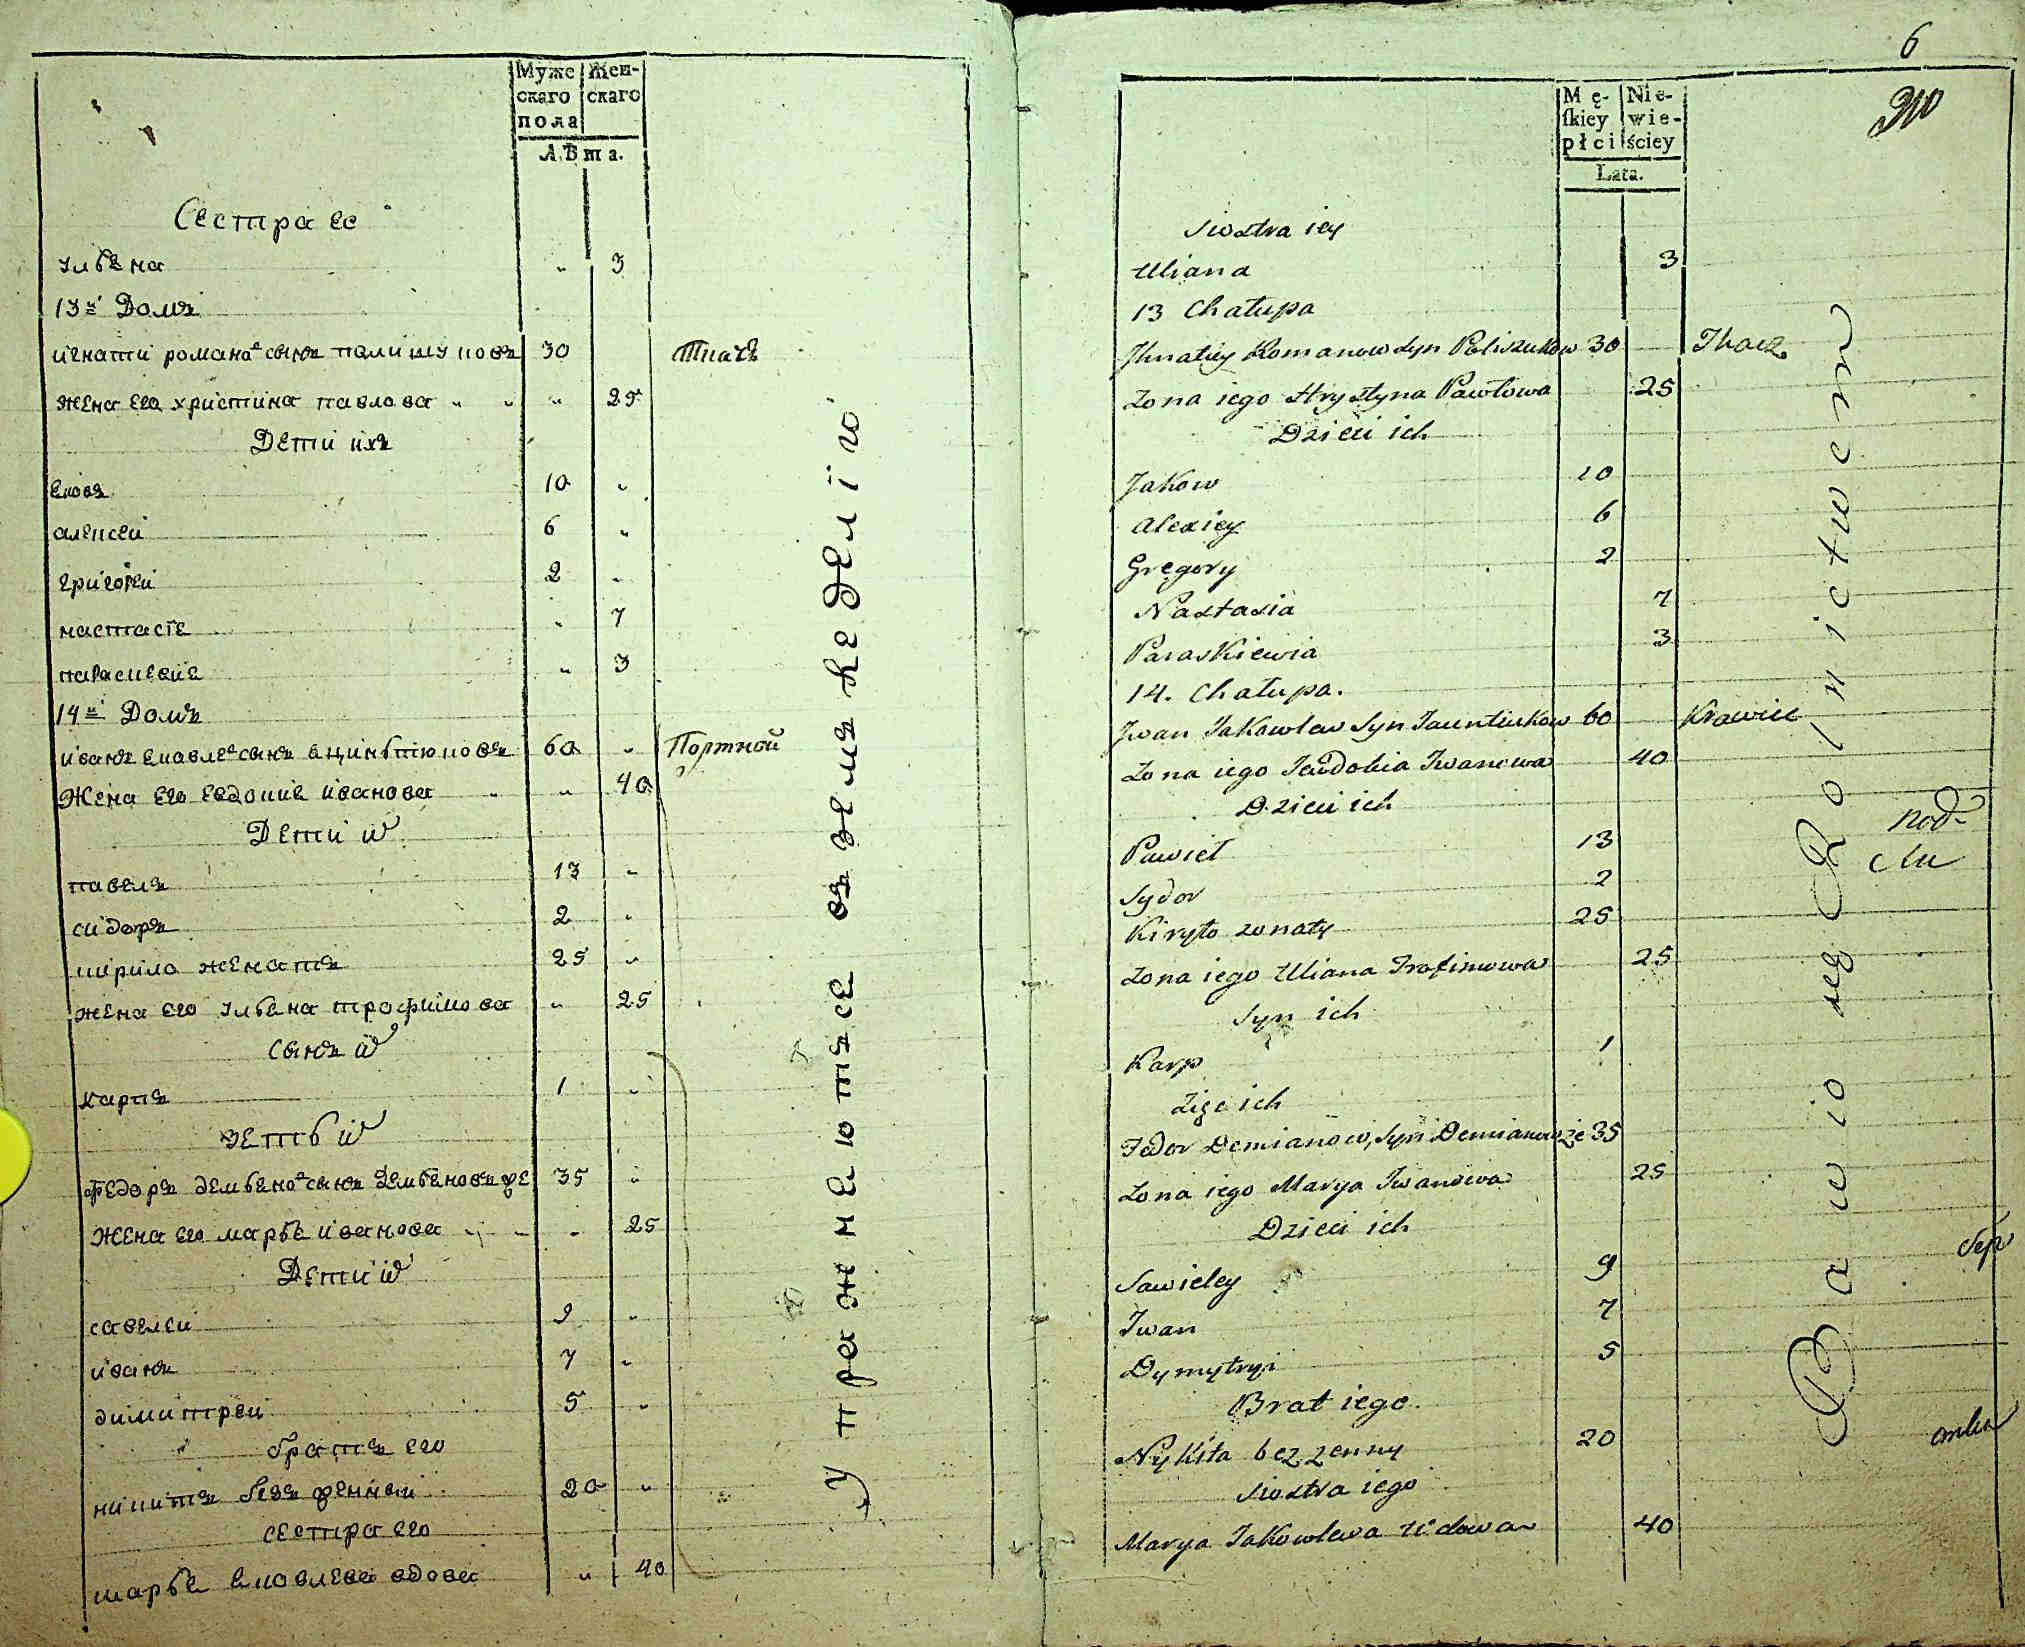 Муже
скаго
пола
Жен-
скаго
Лѣта.
Сестра ее
улѣна 3
13й Домъ
игнатй романо в сынъ полишуковъ 30 Ткачъ
жена его христина павлова 25
Дети ихъ
яковъ 10
алексей 6
григорей 2
настася 7
параскевия 3
14й Домъ
иванъ яковле в сынъ яцинътюковъ 60 Портной
Жена его евдокия иванова 40
Дети и х
павелъ 13
сидоръ 2
кирило женатъ 25
жена его улѣяна трофимова 25
сынъ и х
карпъ 1
зеть и х
федоръ демьяно в сынъ демьяновъ же 35
жена его марья иванова 25
Дети и х
савелей 9
иванъ 7
димитрей 5
братъ его
никита безъ женный 20
сестра его
марья яковлева вдова 40
упражняютъся въ земледелiю
6
Mę-
skiey
płci
Nie-
wie-
ściey
Lata.
Siostra iey
Uliana 3
13 Chałupa
Ihnatiey Romanow Syn Poliszukow 30 Tkacz
Zona iego Hrystyna Pawłowa 25
Dzieci ich
Jakow 10
Alexiey 6
Gregory 2
Nastasia 7
Paraskiewia 3
14. Chałupa.
Jwan Jakowlew Syn Jauntiukow 60 Krawiec
Zona iego Jewdokia Jwanowa 40
Dzieci ich
Pawieł 13
Sydor 2
Kiryło zonaty 25
Zona iego Uliana Trofimowa 25
Syn ich
Karp 1
Zięć ich
Fedor Demianow, Syn Demianow że 35
Zona iego Marya Jwanowa 25
Dzieci ich
Sawieley 9
Jwan 7
Dymytryi 5
Brat iego
Nykita bez zenny 20
Siostra iego
Marya Jakowlewa wdowa 40
Bawią się Rolnictwem